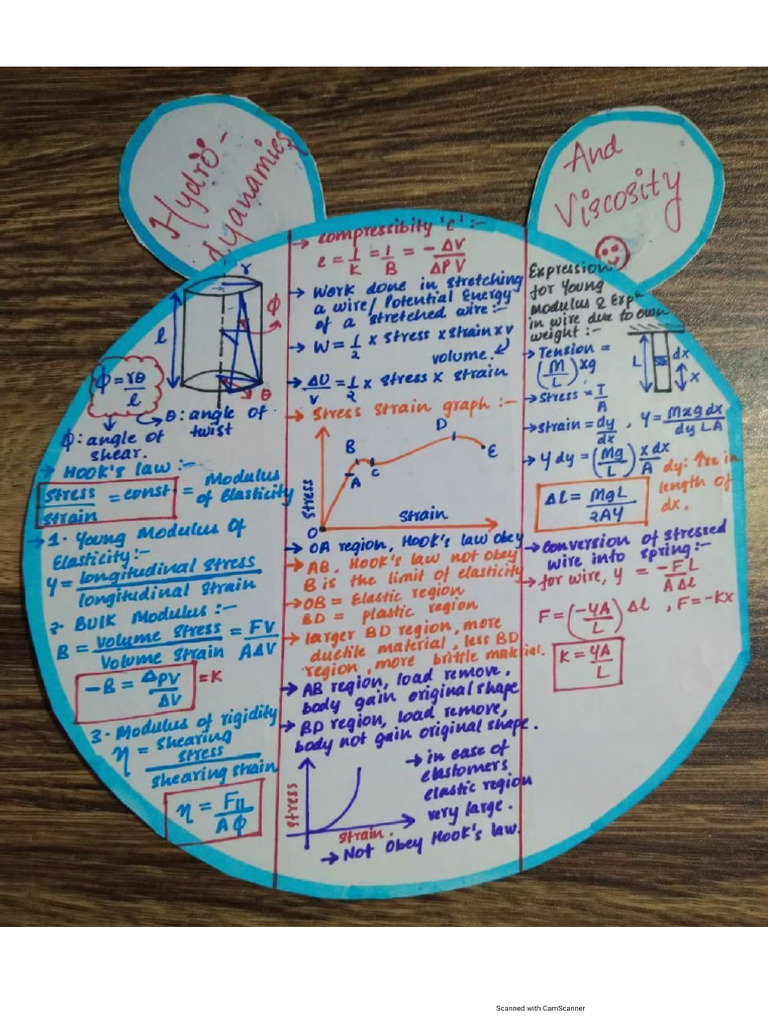 Hydro-
dyanamics
And
Viscosity
r
l
ϕ
θ
ϕ = rθ/l
θ: angle of
twist
ϕ: angle of
shear.
→ Hook's law :-
Stress/Strain = const = Modulus
of Elasticity
→ 1. Young Modulus Of
Elasticity:-
Y = longitudinal stress/longitudinal strain
2. Bulk Modulus :-
B = Volume stress/Volume strain = FV/AΔV
-B = ΔPV/ΔV = K
3. Modulus of rigidity
η = Shearing stress/shearing strain
η = F11/Aϕ
→ Compressibity 'C' :-
C = 1/K = 1/B = -ΔV/ΔPV
→ Work done in stretching
a wire/ Potential Energy
of a stretched wire:-
→ W = 1/2 x stress x strain x v
volume.
→ ΔU/V = 1/2 x stress x strain
→ Stress strain graph :-
Stress
O
A
B
C
D
E
Strain
→ OA region, Hook's law obey
→ AB, Hook's law not obey
B is the limit of elasticity
→ OB = Elastic region
BD = plastic region
→ larger BD region, more
ductile material, less BD
region, more brittle material.
→ AB region, load remove,
body gain original shape
→ BD region, load remove,
body not gain original shape.
Stress
Strain.
→ in case of
elastomers
elastic region
very large.
→ Not Obey Hook's law.
Expression
for Young
Modulus & Exp
in wire due to own
weight :-
→ Tension =
(M/L)xg
L
dx
x
→ Stress = T/A
→ strain = dy/dx , Y = Mxgdx/dyLA
→ Y dy = (Mg/L) xdx/A
dy: ↑se in
length of
dx.
Δl = MgL/2AY
→ Conversion of stressed
wire into spring:-
→ for wire, Y = -FL/AΔl
F = (-YA/L) Δl , F = -Kx
K = YA/L
Scanned with CamScanner